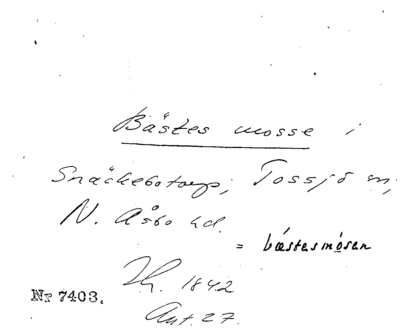 Bästes mosse i
Snäckebotorp, Tossjö sn,
N. Åsbo hd.
= bästesmósen
Jh. 1842
Ant. 27.
Nr 7403.